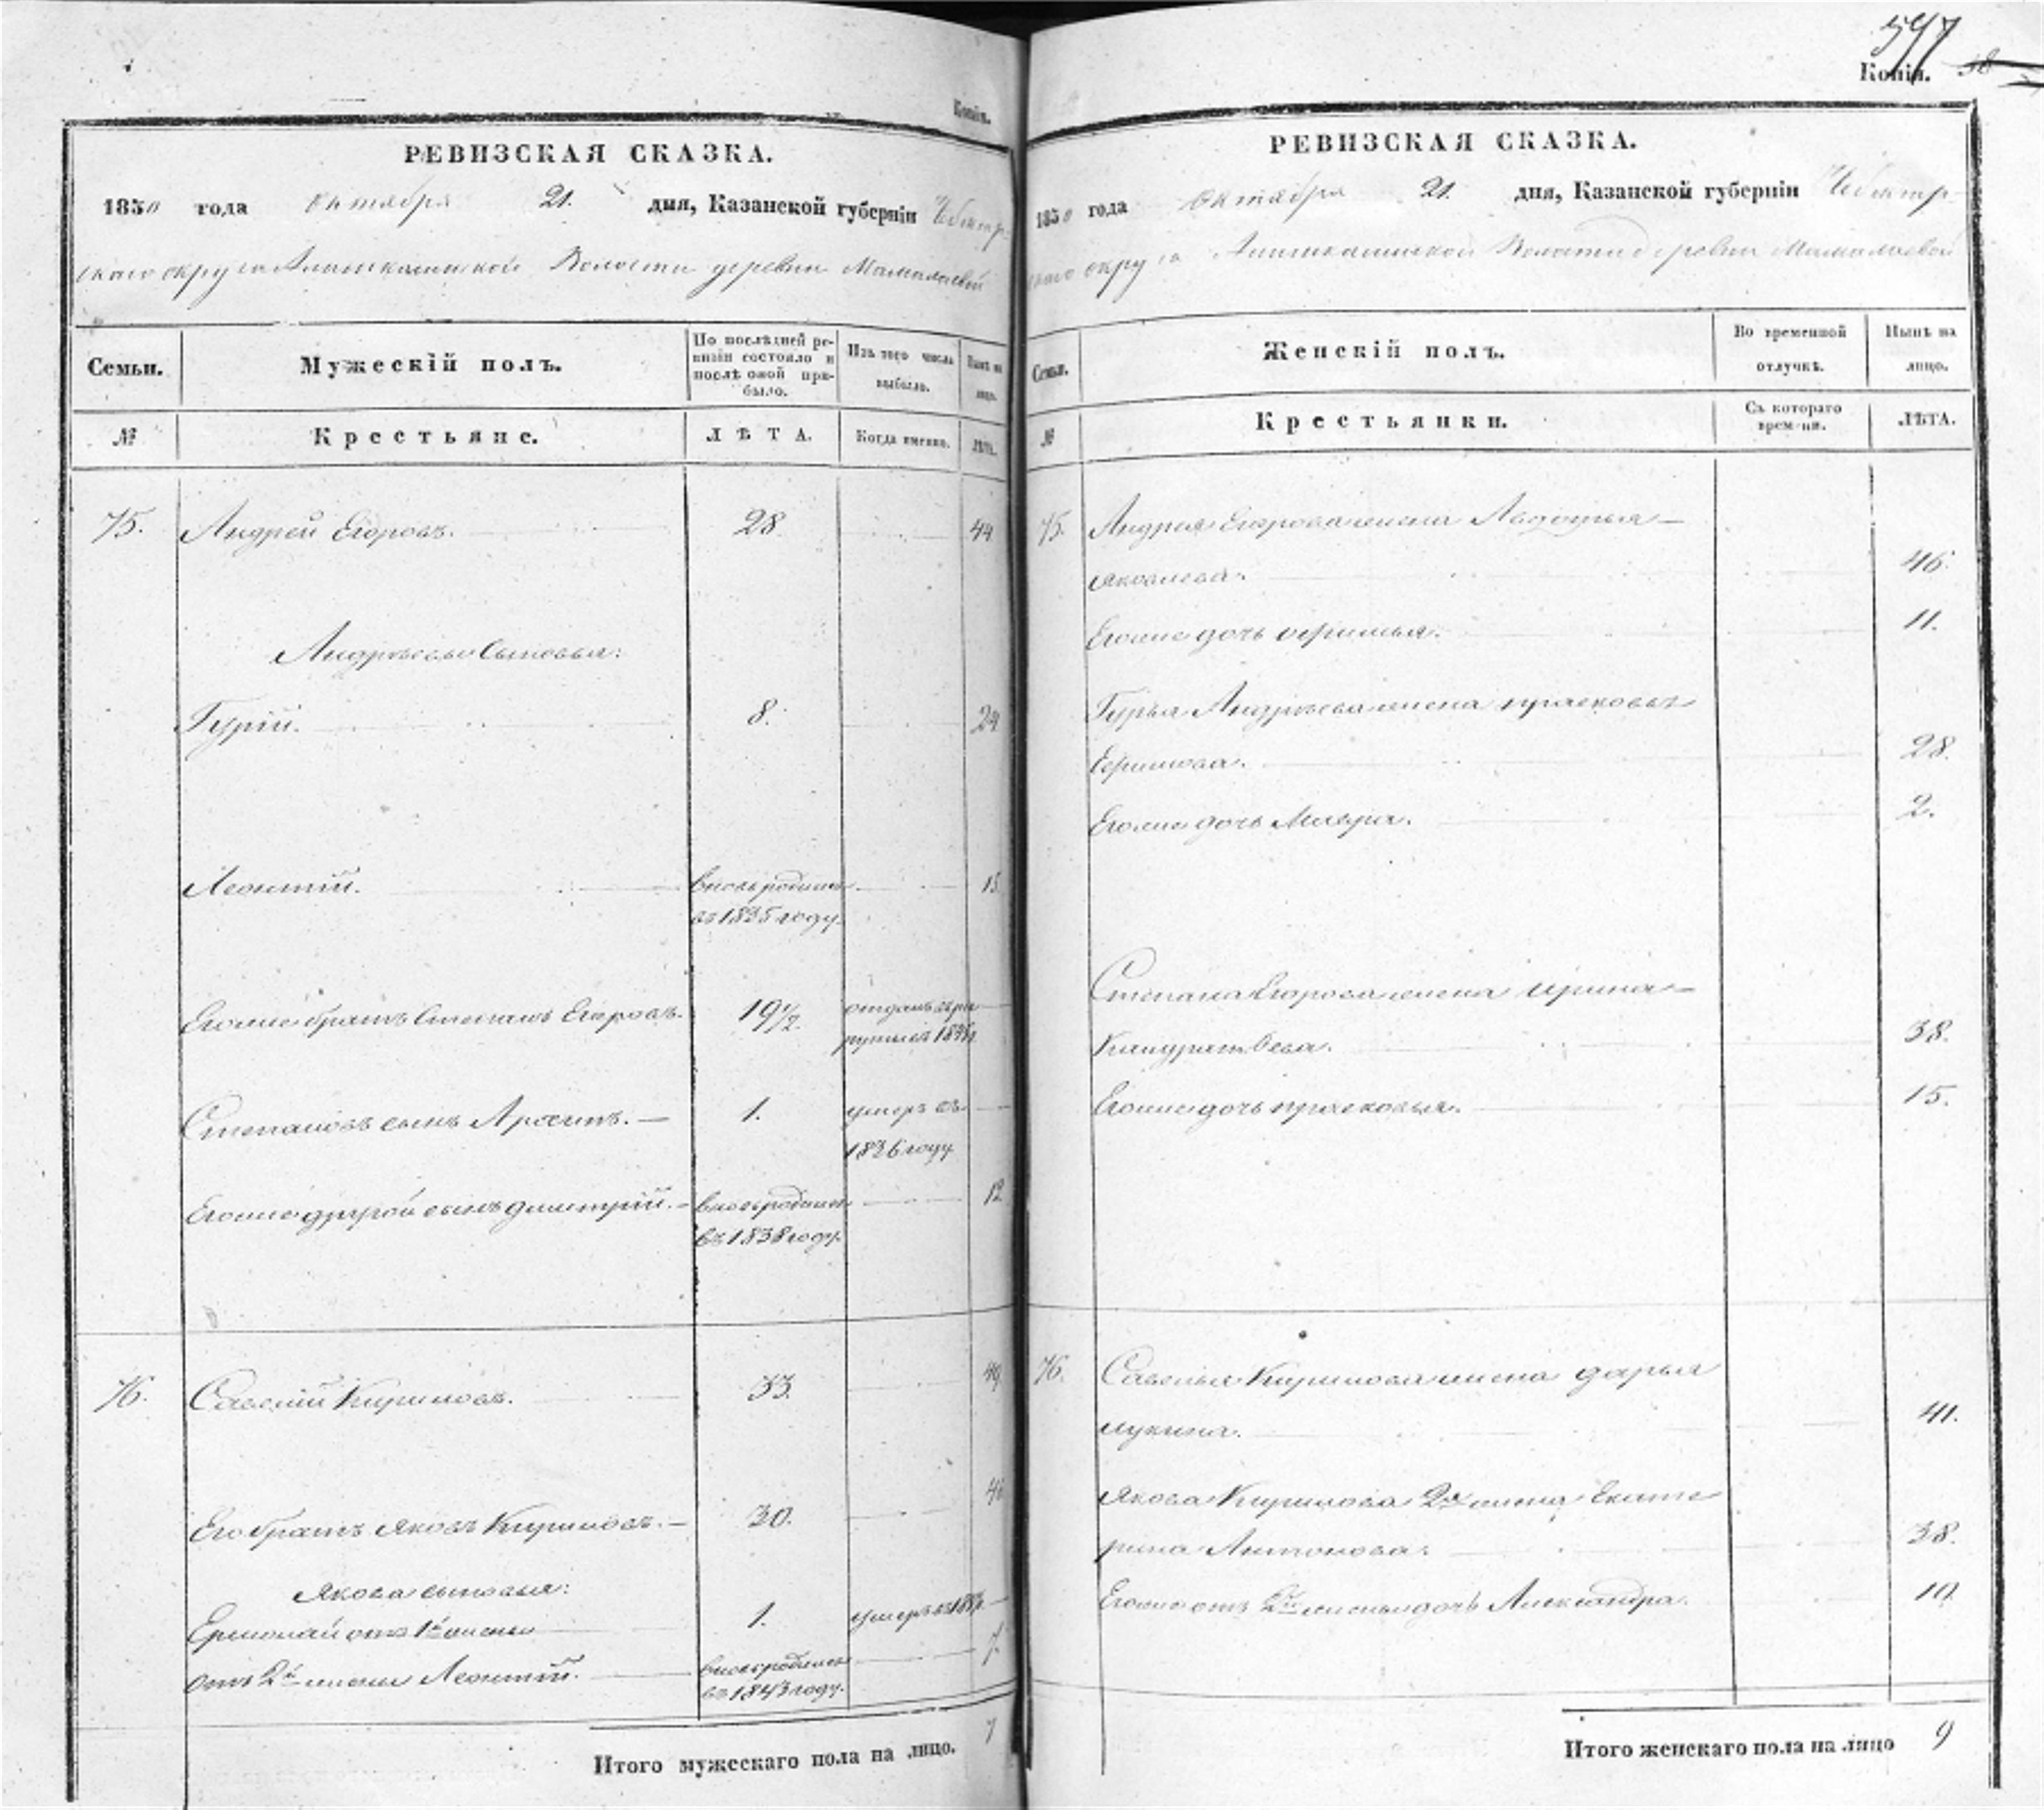 Копія.
РЕВИЗСКАЯ СКАЗКА.
1850 года октября 21. дня, Казанской губерніи Чебоксар-
скаго округа Волости деревни Мамалаевой
Семьи. Мужескій полъ. По послѣдней ре-
визіи состояло и
послѣ оной при-
было. Изъ того числа
выбыло. Нынѣ на
лицо.
№ Крестьяне. ЛѢТА. Когда именно. ЛѢТА.
75. Андрей Егоровъ. 28. 44
Андреевы сыновья:
Гурій. 8. 24
Леонтій. вновь рожденъ 15.
въ 1835 году.
Егоже братъ Степанъ Егоровъ. 19 1/2. отданъ въ ре
круты въ
Степановъ сынъ 1. умеръ въ
1836 году
Егоже другой сынъ Дмитрій. вновь рожденъ 12
въ 1838 году.
76. Савелій Кириловъ. 33. 49
Его братъ Яковъ Кириловъ. 30. 46
Якова сыновья:
Ермолай отъ 1й жены 1. умеръ въ
отъ 2й жены Леонтій. вновь рожденъ 7.
въ 1843 году.
Итого мужескаго пола на лицо. 7
597
Копія.
РЕВИЗСКАЯ СКАЗКА.
1850 года октября 21. дня, Казанской губерніи Чебоксар-
скаго округа Волости деревни Мамалаевой
Семьи. Женскій полъ. Во временной
отлучкѣ. Нынѣ на
лицо.
№ Крестьянки. Съ котораго
времени. ЛѢТА.
75. Андрея Егорова жена Авдотья
Яковлева. 46.
Егоже дочь 11.
Гурья Андреева жена Прасковья
Ефимова. 28.
Егоже дочь Мавра. 2.
Степана Егорова жена Ирина
Кандратьева. 38.
Егоже дочь Прасковья. 15.
76. Савелья Кирилова жена Дарья
Лукина. 41.
Якова Кирилова 2я жена Екате
рина Антонова. 38.
Егоже отъ 2й жены дочь Александра. 10.
Итого женскаго пола на лицо 9